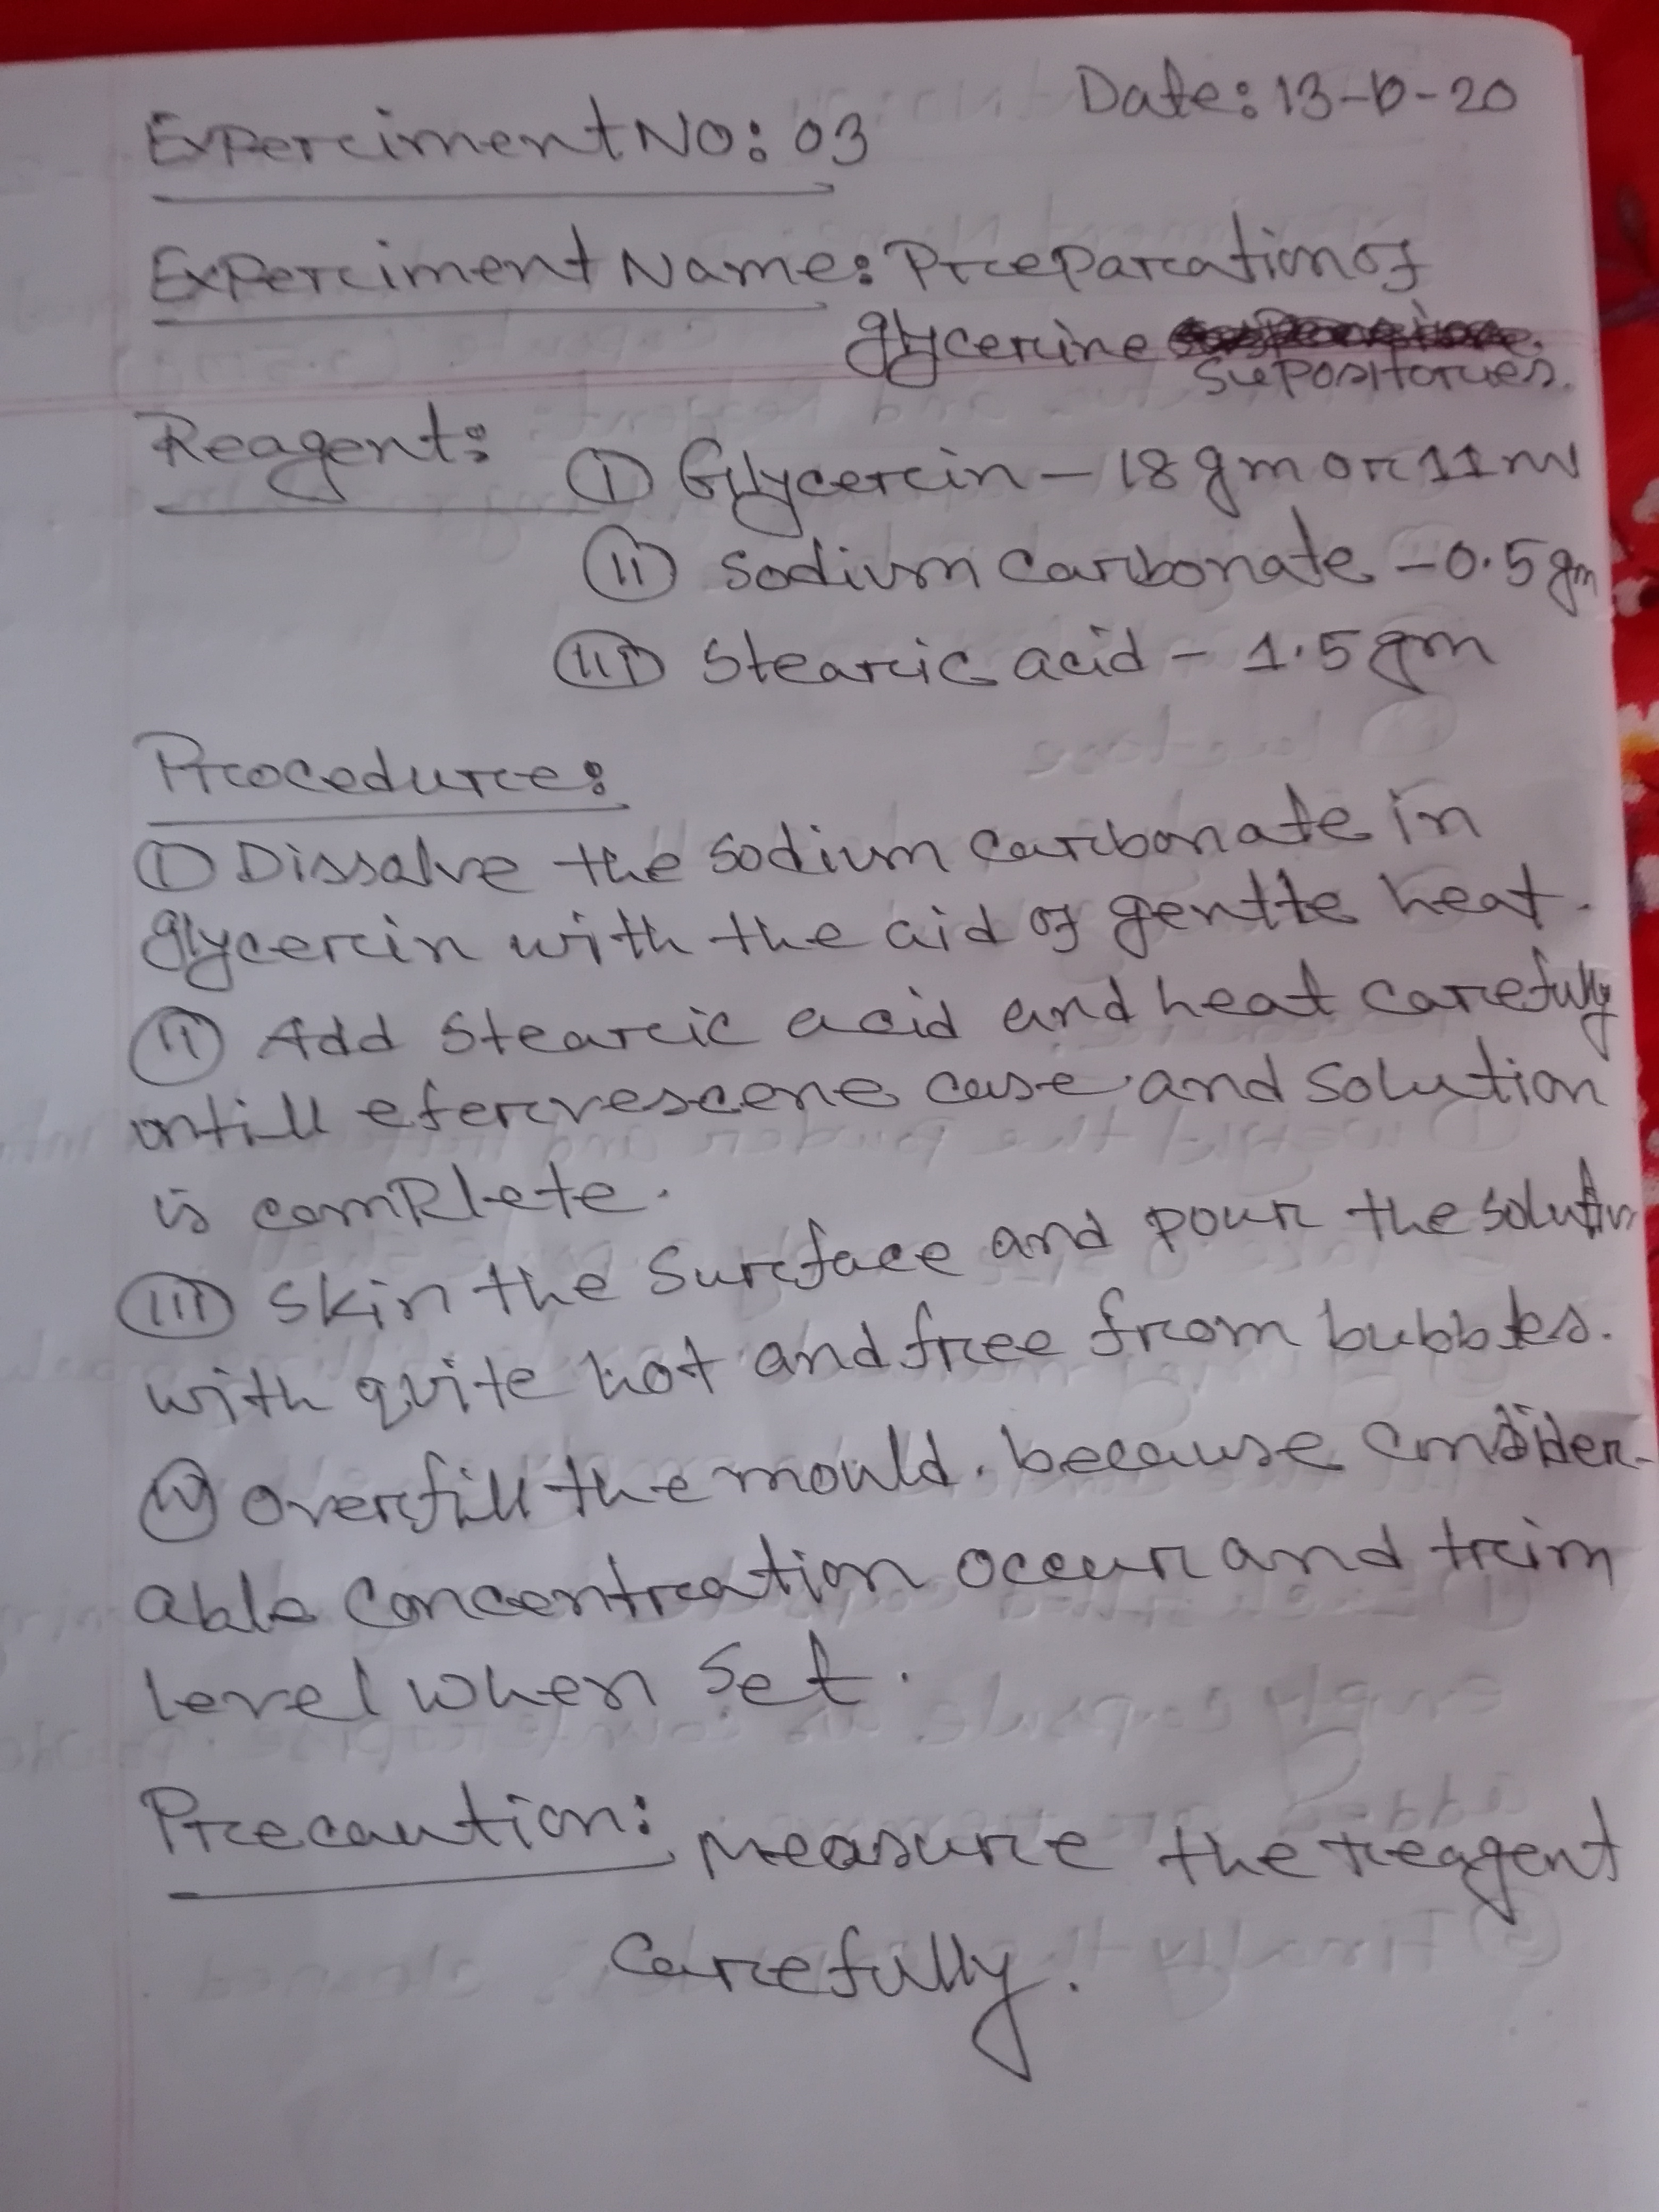 Experiment No: 03
Date: 13-10-20
Experiment Name: Preparation of
glycerine
supositories.
Reagent:
(I) Glycerin - 18 gm or 11 ml
(II) Sodium carbonate - 0.5 gm
(III) Stearic acid - 1.5 gm
Procedure:
(I) Dissalve the sodium carbonate in
glycerin with the aid of gentte heat.
(II) Add stearic acid and heat carefully
ontill efervescene case and solution
is complete.
(III) Skin the surface and pour the solution
with quite hot and free from bubbles.
(IV) overfill the mould. because consider-
able concentration occur and trim
level when set.
Precaution: Measure the reagent
carefully.